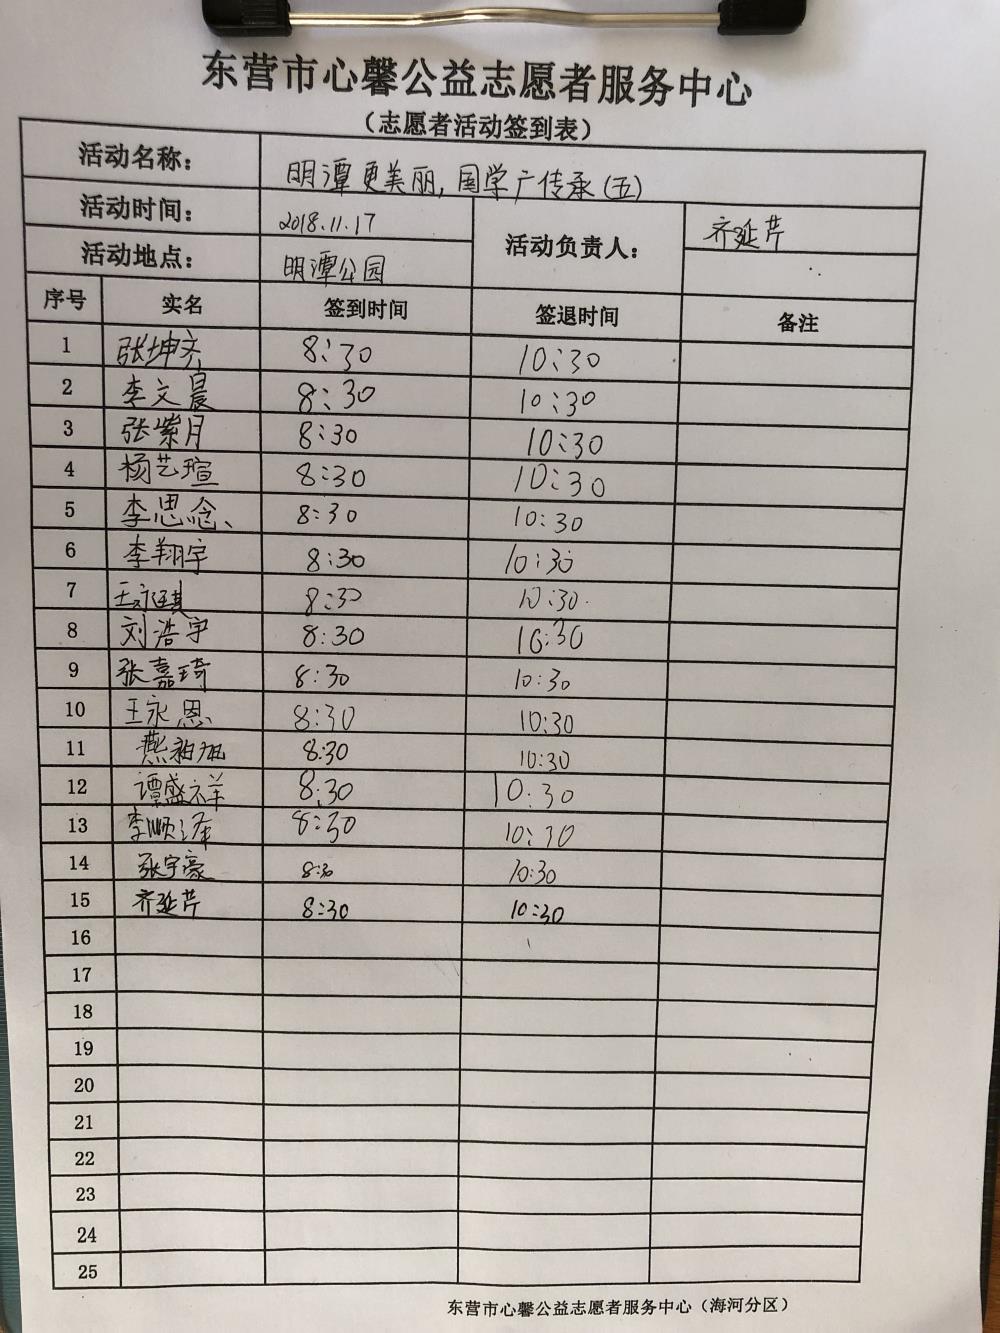 东营市心馨公益志愿者服务中心
（志愿者活动签到表）
活动名称： 明潭更美丽,国学广传承(五)
活动时间： 2018.11.17 活动负责人： 齐延芹
活动地点： 明潭公园
序号 实名 签到时间 签退时间 备注
1 张坤齐 8:30 10:30
2 李文晨 8:30 10:30
3 张紫月 8:30 10:30
4 杨艺瑄 8:30 10:30
5 李思念、 8:30 10:30
6 李翔宇 8:30 10:30
7 8:30 10:30.
8 刘浩宇 8:30 10:30
9 张嘉琦 8:30 10:30
10 王永恩 8:30 10:30
11 8:30 10:30
12 谭盛祥 8:30 10:30
13 李顺泽 8:30 10:30
14 张宇豪 8:30 10:30
15 齐延芹 8:30 10:30
16
17
18
19
20
21
22
23
24
25
东营市心馨公益志愿者服务中心（海河分区）